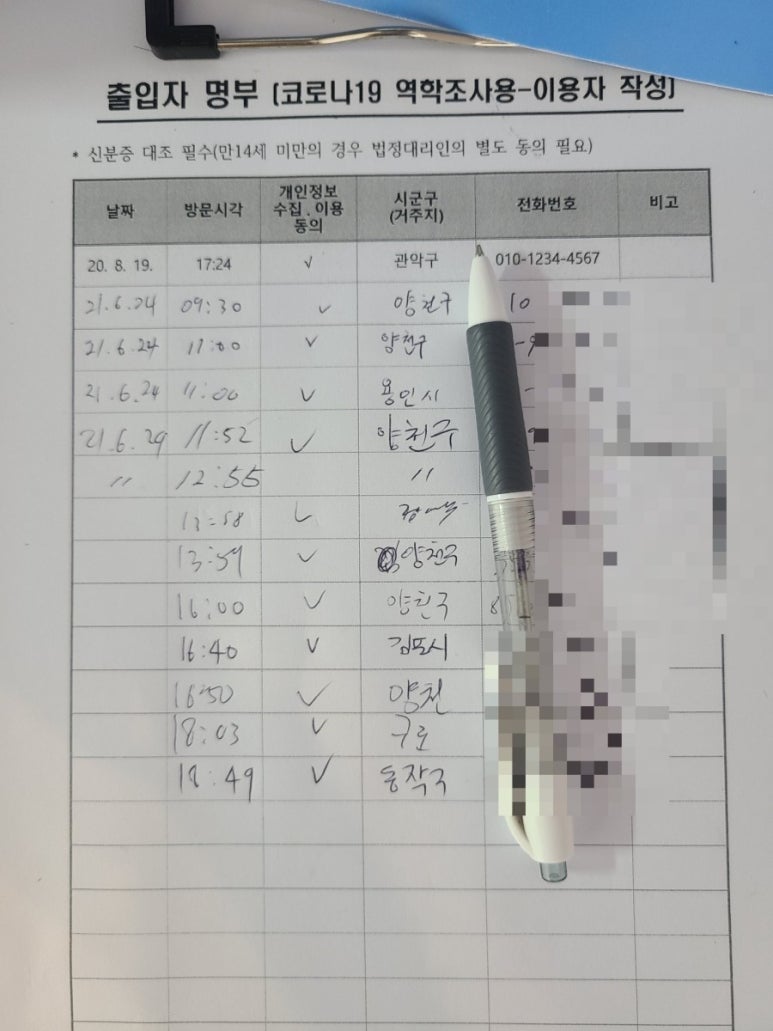 출입자 명부 (코로나19 역학조사용-이용자 작성)
* 신분증 대조 필수(만14세 미만의 경우 법정대리인의 별도 동의 필요)
날짜 방문시각 개인정보 수집.이용 동의 시군구 (거주지) 전화번호 비고
20. 8. 19. 17:24 √ 관악구 010-1234-4567
21.6.24 09:30 ✓ 양천구 10
21.6.24 11:00 ✓ 양천구
21.6.24 11:00 ✓ 용인시
21.6.29 11:52 ✓ 양천구
〃 12:55 〃
13:58 ✓
13:59 ✓ 양천구
16:00 ✓ 양천구
16:40 ✓ 김포시
16:50 ✓ 양천
18:03 ✓ 구로
18:49 ✓ 동작구